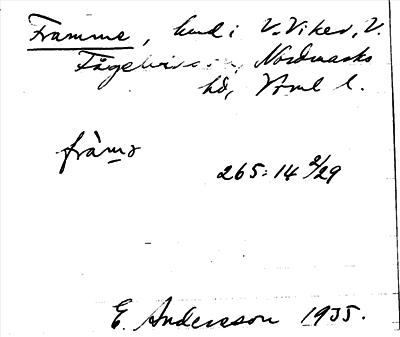 Framme, hmd i V. Viker, V.
Fågelvik, Nordmarks
hd, Vrml l.
fràmə
265:14 2/29
E. Andersson 1935.